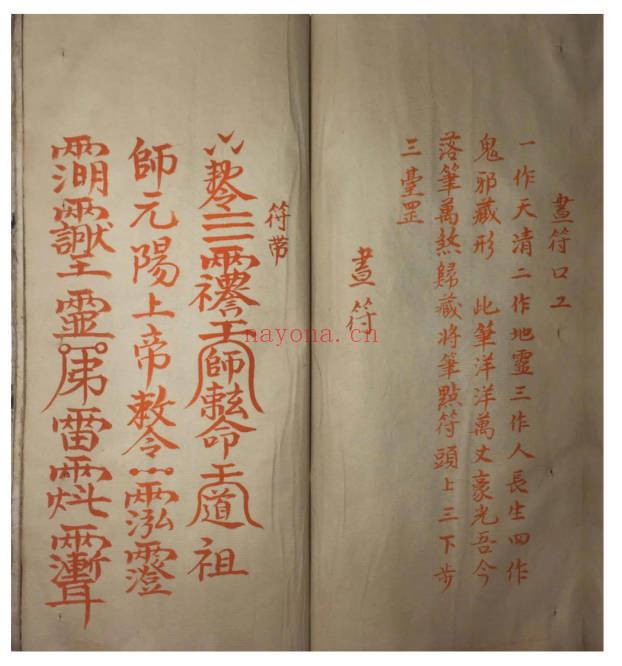 畫符口工
一作天清二作地靈三作人長生四作
鬼邪藏形 此筆洋洋萬丈豪光吾今
落筆萬煞歸藏將筆點符頭上三下步
三臺罡
畫符
符帶
三師敕命道祖
師元陽上帝敕令
靈雷
nayona.cn